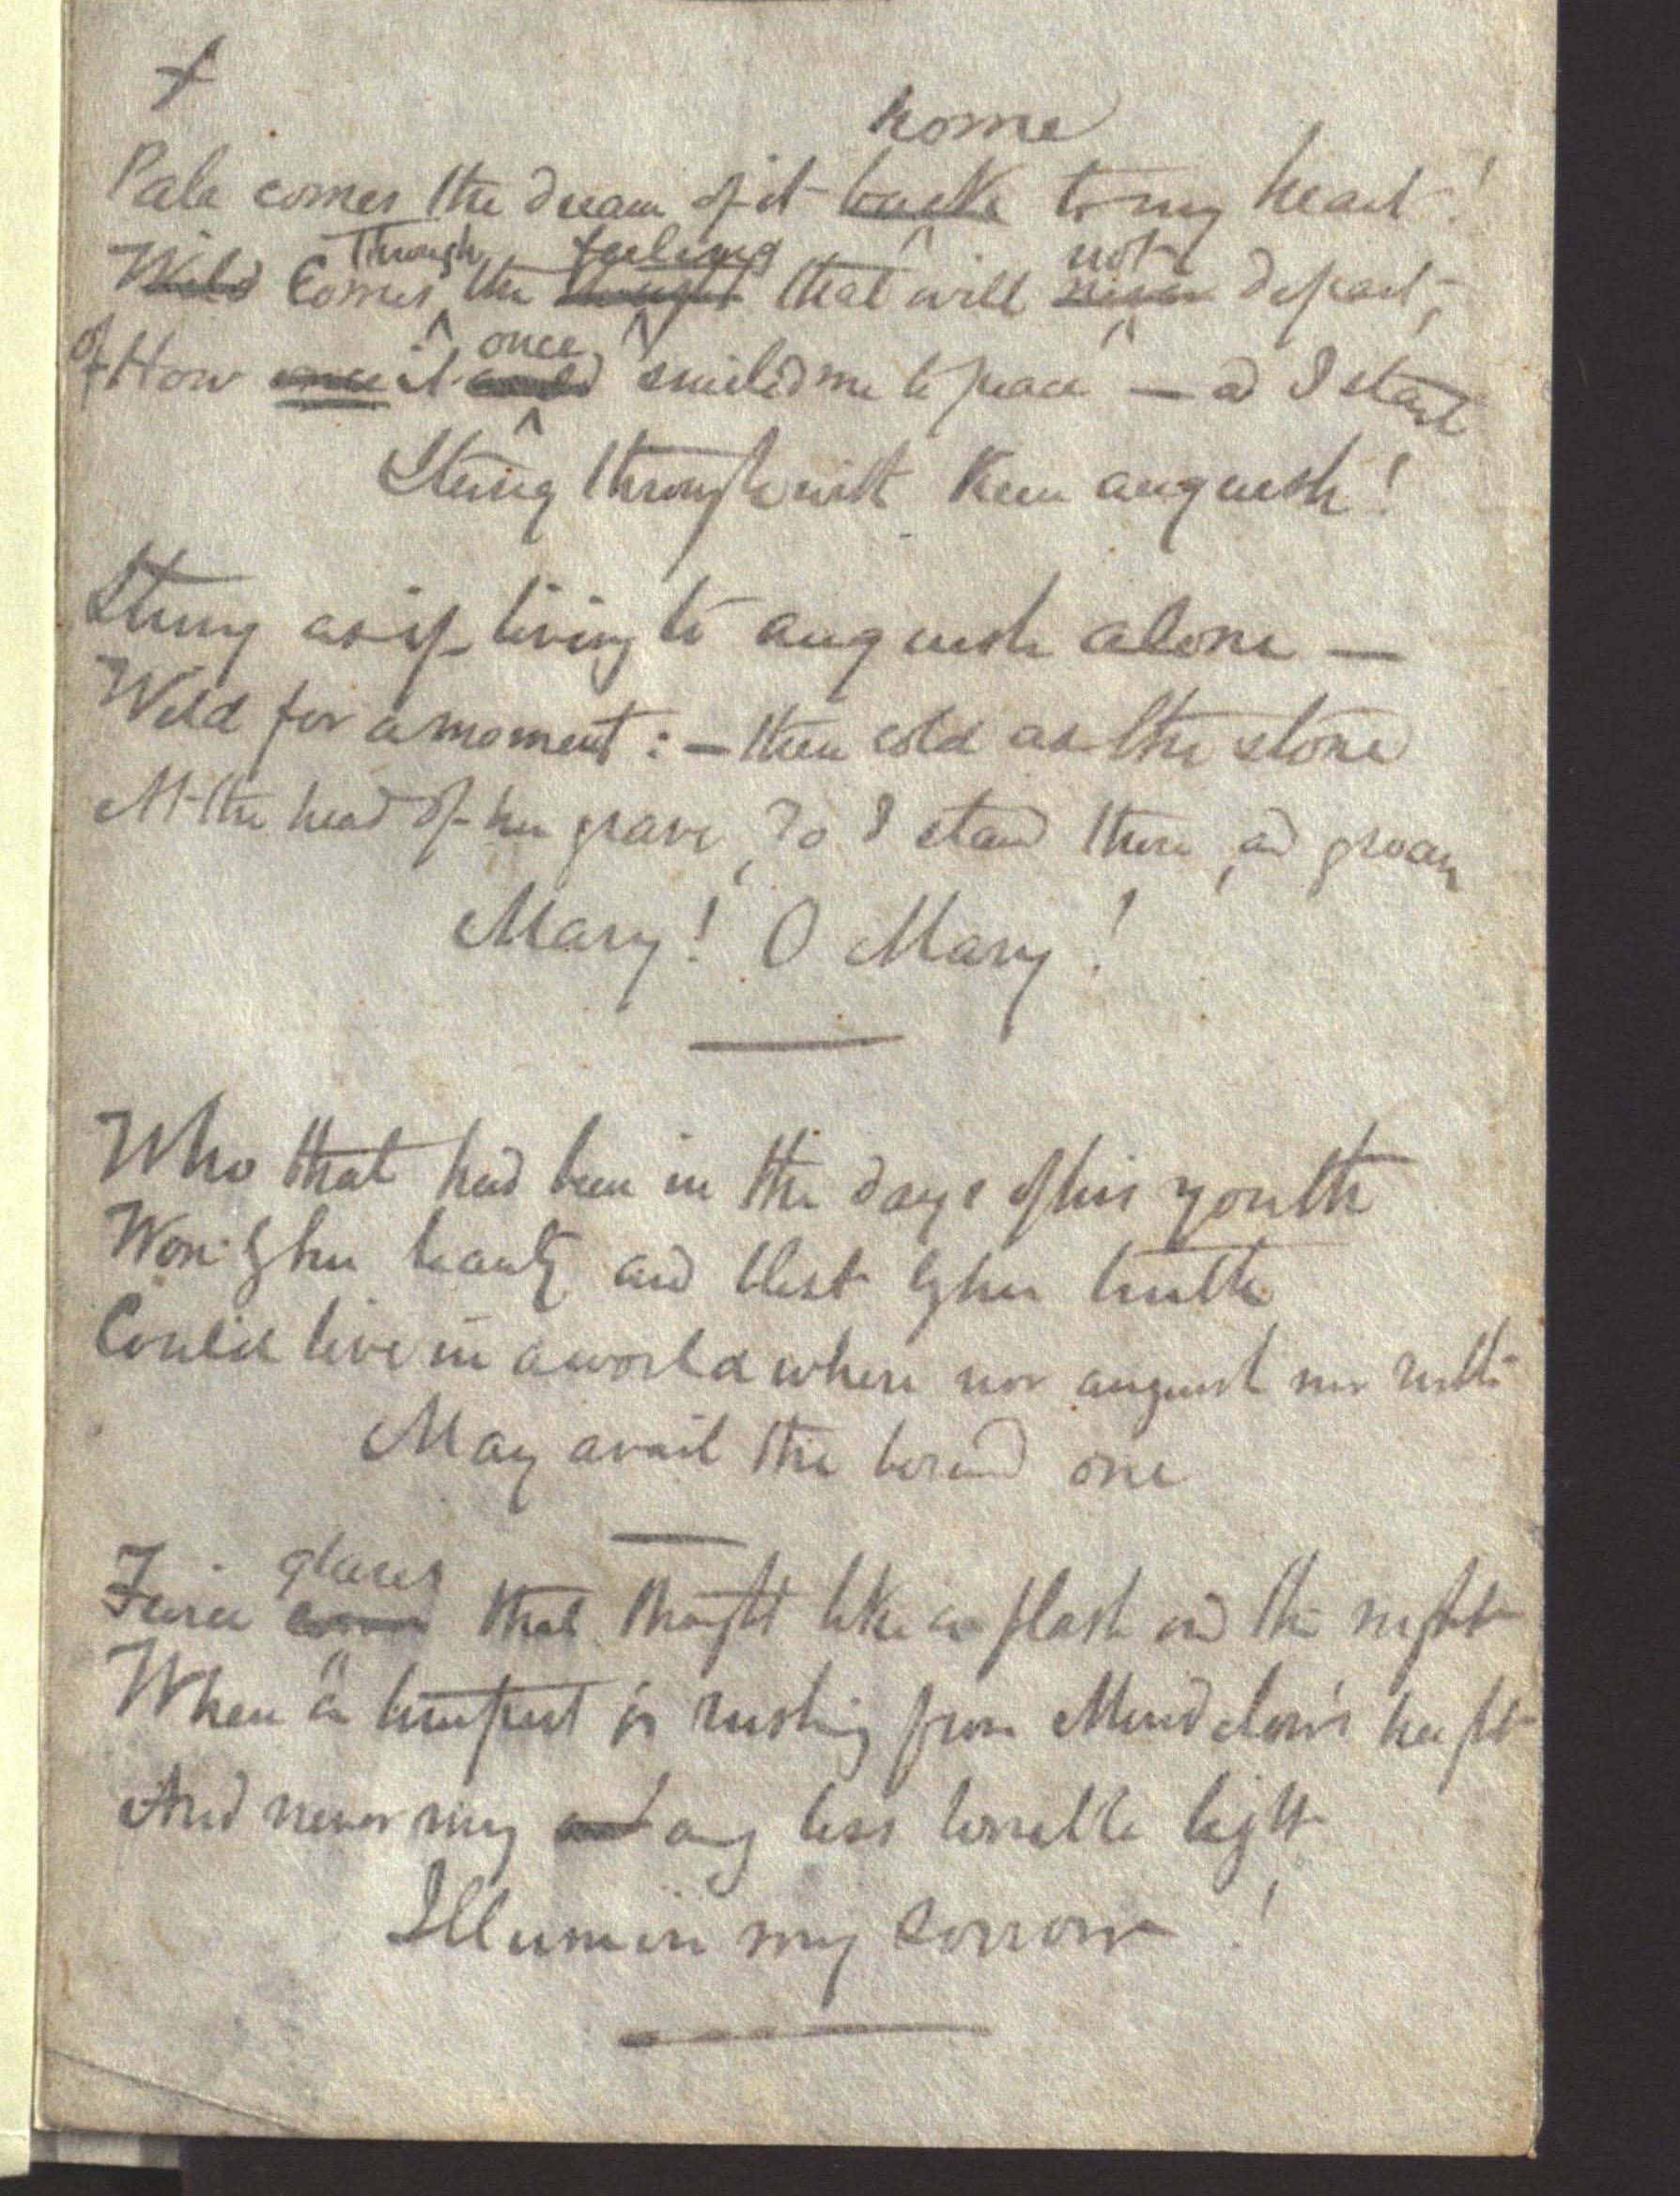 home
Pale comes the dream of it backe to my heart!
Through feelings not
Wild Comes the thought that will never depart;
once
Of How once it could smiled me to peace — ad I start
Stung through with keen anguish!
Stung as if living to anguish alone —
Wild for a moment: — then cold as the stone
At the head of her grave, do I stand there, ad groan
Mary! O Mary!
Who that had been in the days of his youth
Won by her beauty and blest by her truth
Could live in a world where nor anguish nor ruth
May avail the loved one
glares
Fierce that thought like a flash in the night
When a tempest is rushing from Mendelow's height
And never may any less terrible light
Illumin my sorrow!